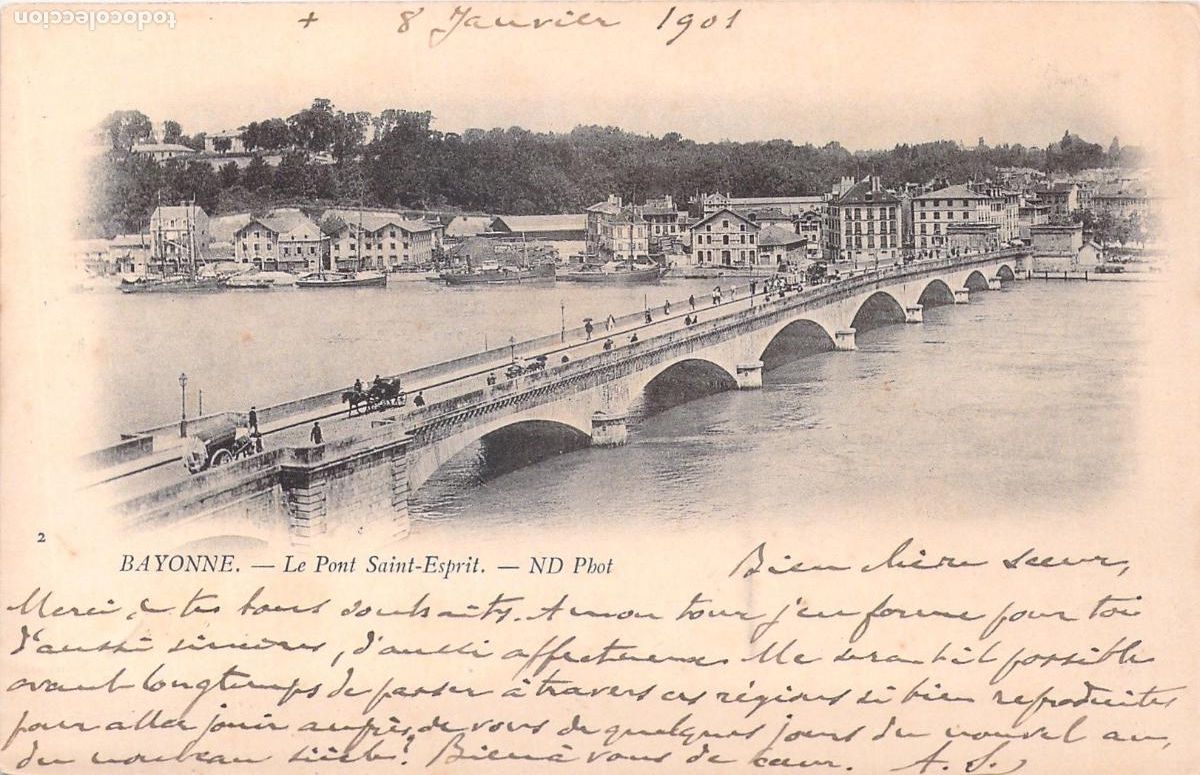 todocoleccion
+ 8 Janvier 1901
2
BAYONNE. — Le Pont Saint-Esprit. — ND Phot
Bien chère sœur,
Merci de tes bons souhaits. A mon tour j'en forme pour toi
d'aussi sincères, d'aussi affectueux. Me serait-il possible
avant longtemps de passer à travers ces régions si bien reproduites
pour aller jouir auprès de vous de quelques jours du nouvel an,
du nouveau siècle? Bien à vous de cœur. A. S.